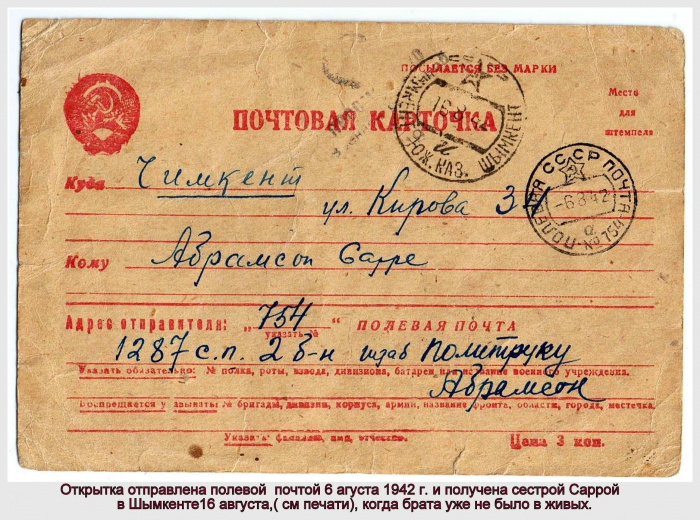 ПОСЫЛАЕТСЯ БЕЗ МАРКИ
Место
для
штемпеля
ПОЧТОВАЯ КАРТОЧКА
ЮЖ. КАЗ. ШЫМКЕНТ
16 8 42
СССР ПОЧТА
ПОЛЕВАЯ
-6 8 42
а
№ 754
Куда Чимкент
ул. Кирова 34
Кому Абрамсон Сарре
Адрес отправителя: „ 754 “ ПОЛЕВАЯ ПОЧТА
указать №
1287 с.п. 2 б-н штаб Политруку
Указать обязательно: № полка, роты, взвода, дивизиона, батареи, название военного учреждения.
Абрамсон
Воспрещается указывать: № бригады, дивизии, корпуса, армии, название фронта, области, города, местечка.
Указать фамилию, имя, отчество.
Цена 3 коп.
Открытка отправлена полевой почтой 6 агуста 1942 г. и получена сестрой Саррой
в Шымкенте16 августа,( см печати), когда брата уже не было в живых.